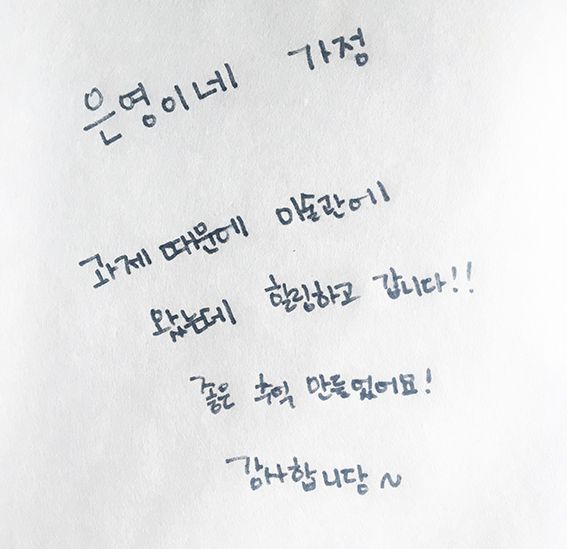 은영이네 가정
과제 때문에 미술관에
왔는데 힐링하고 갑니다!!
좋은 추억 만들었어요!
감사합니당~